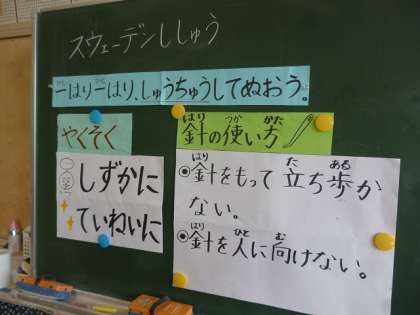 スウェーデンししゅう
一はり一はり、しゅうちゅうしてぬおう。
やくそく
しずかに
ていねいに
針の使い方
はり つか かた
針をもって立ち歩か
はり た ある
ない。
針を人に向けない。
はり ひと む